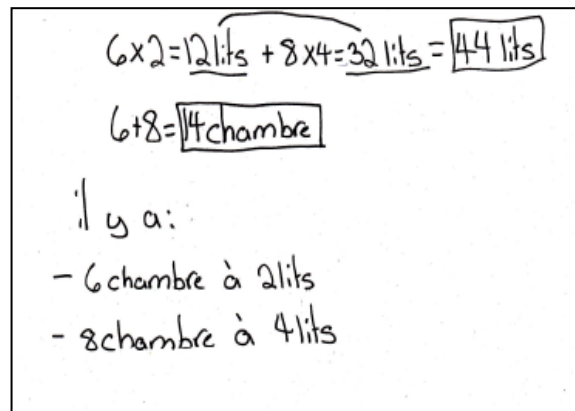 6x2=12lits + 8x4=32 lits = 44 lits
6+8=14chambre
il y a:
- 6chambre à 2lits
- 8chambre à 4lits